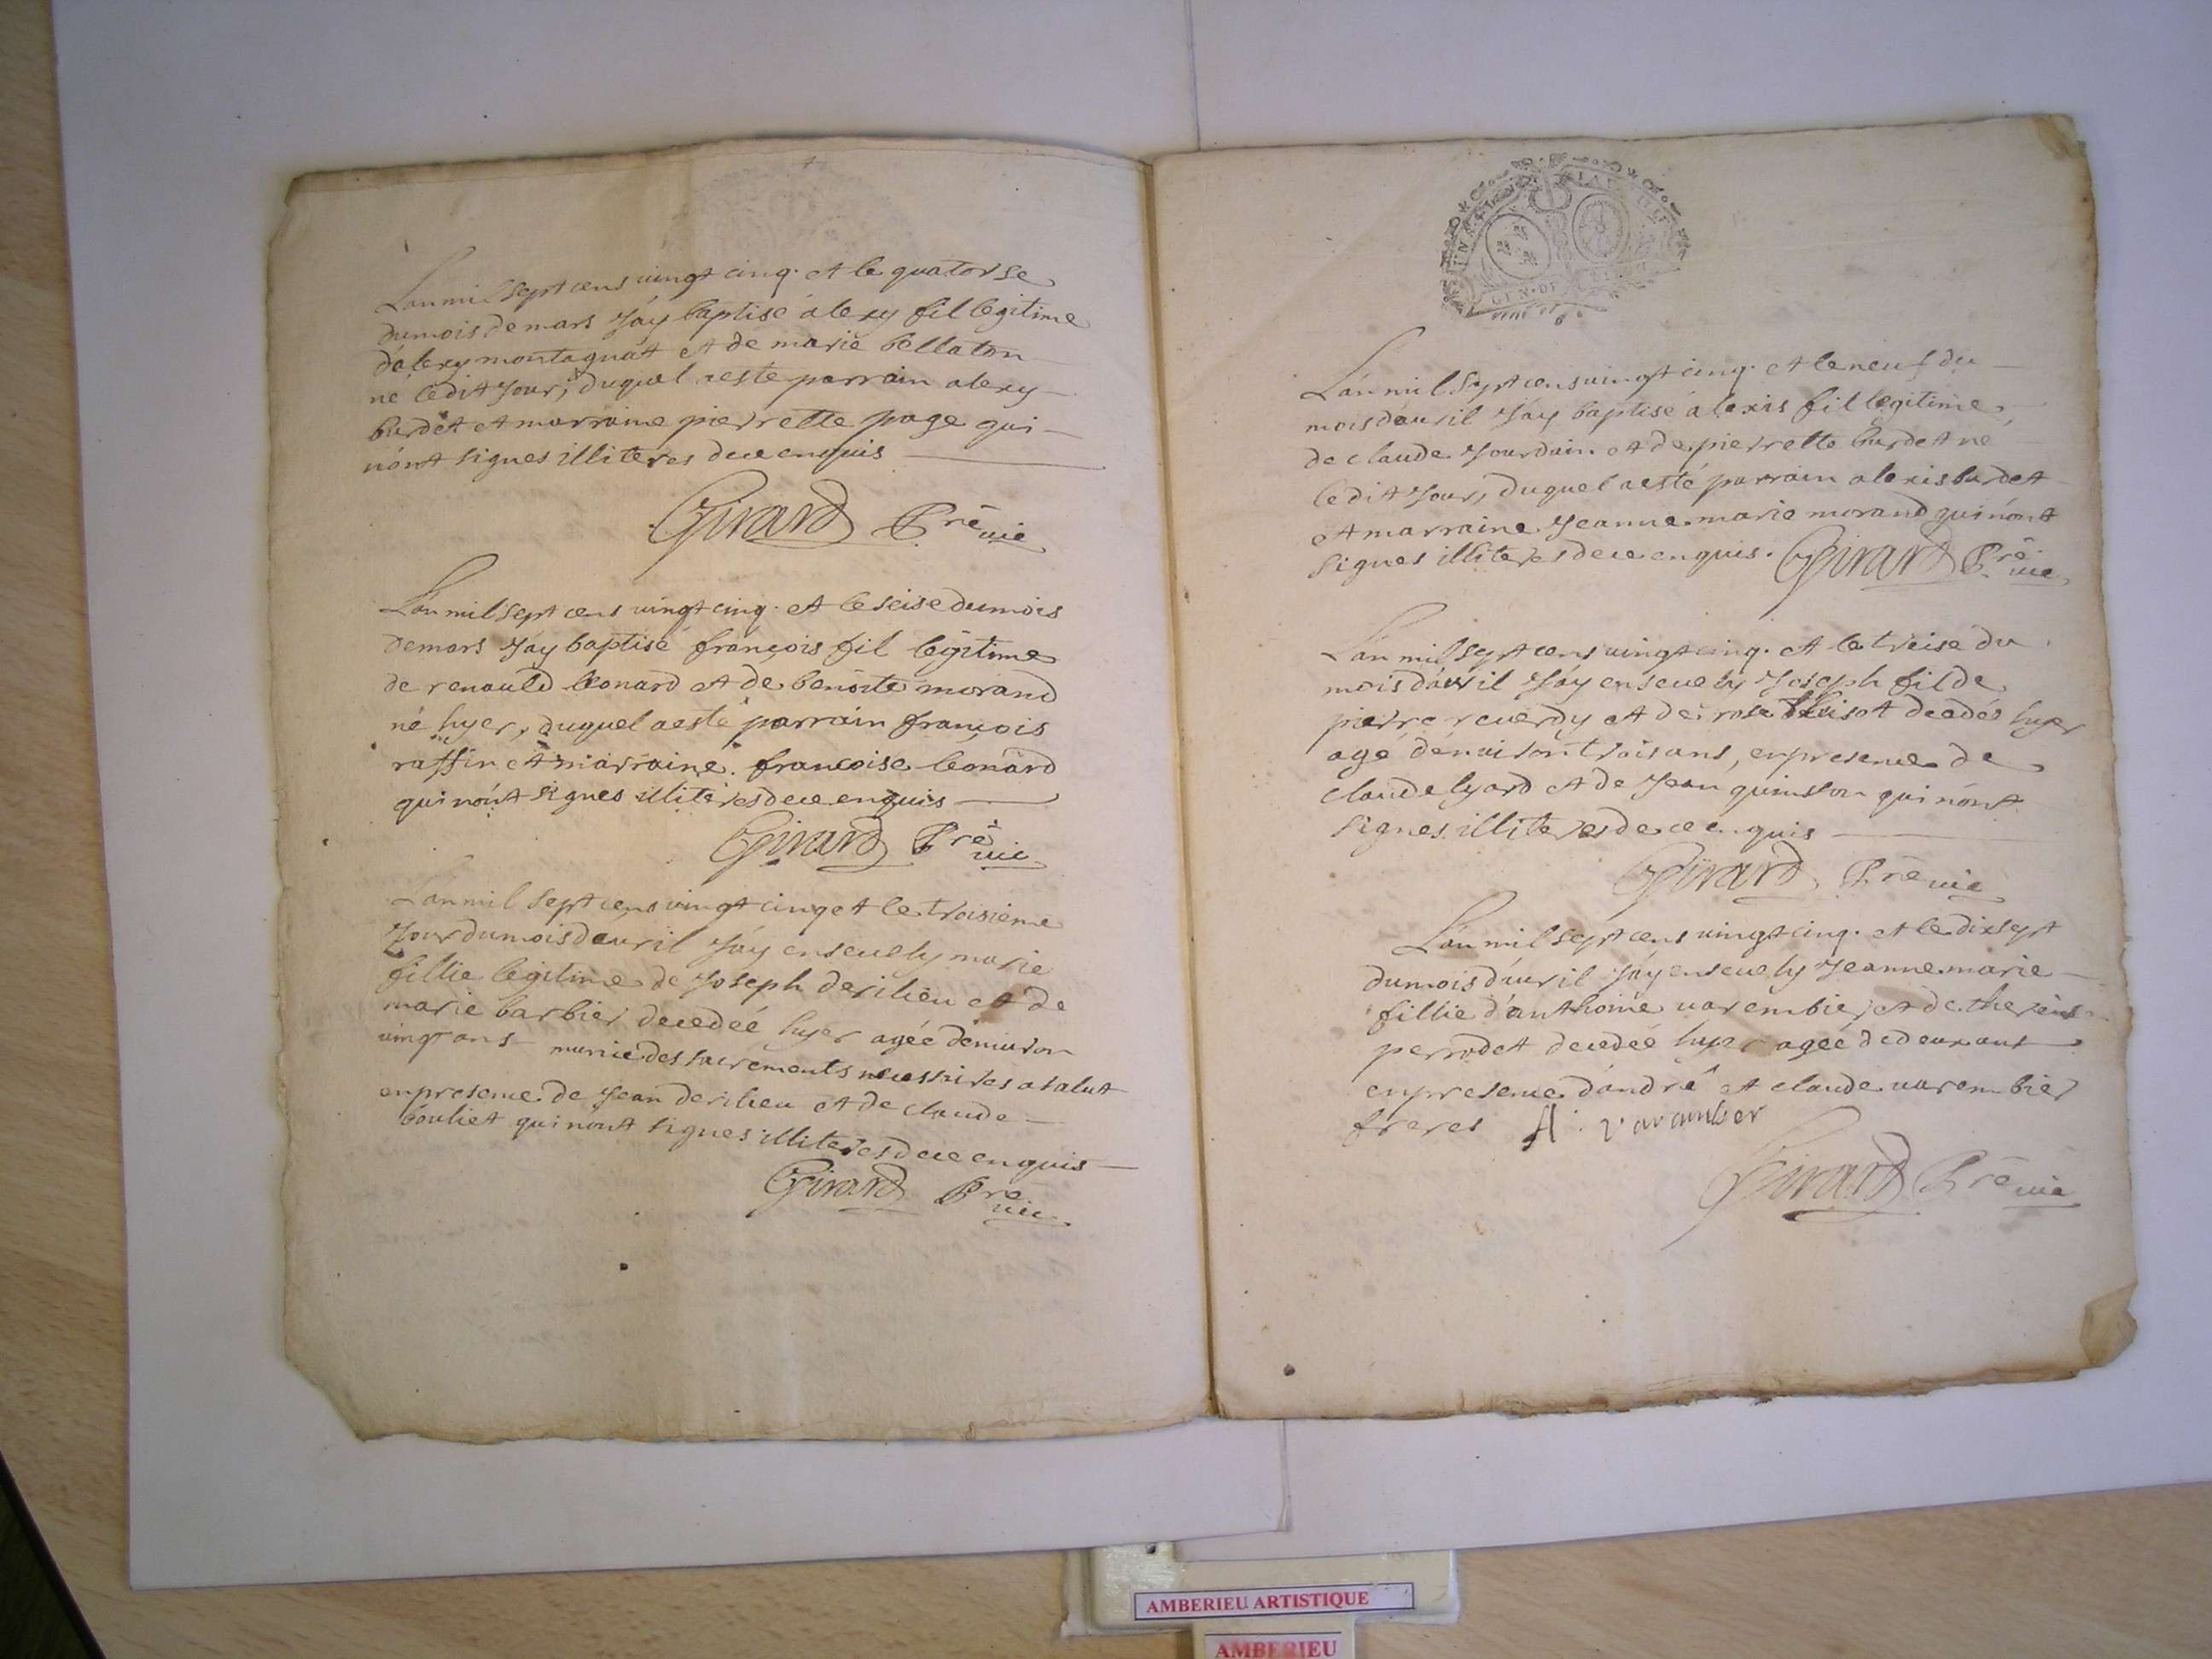 L'an mil sept cens vingt cinq. et le quatorse
du mois de mars j'ay baptisé alexy fil legitime
d'alexy montagnat et de marie bellaton
né ledit jour, duquel a esté parrain alexy
burdet et marraine pierrette page qui
n'ont signes illiteres de ce enquis
Girard Prê vic
L'an mil sept cens vingt cinq. et le seise du mois
de mars j'ay baptisé françois fil legitime
de renauld leonard et de benoite morand
né hyer, duquel a esté parrain francois
raffin et marraine. francoise leonard
qui n'ont signes illiteres de ce enquis
Girard Prê vic
L'an mil sept cens vingt cinq et le troisieme
jour du mois d'avril j'ay ensevely marie
fillie legitime de Joseph derilieu et de
marie barbier decedeé hyer ageé d'environ
vingt ans munie des sacrements necessaires a salut
en presence de Jean derilieu et de claude
bouliet qui n'ont signes illiteres de ce enquis
Girard Prê vic
L'an mil sept cens vingt cinq. et le neuf du
mois d'avril j'ay baptisé alexis fil legitime
de claude Jourdain et de pierrette burdet né
ledit jour, duquel a esté parrain alexis burdet
et marraine Jeanne marie morand qui n'ont
signes illiteres de ce enquis. Girard Prê vic
L'an mil sept cens vingt cinq. et le treise du
mois d'avril j'ay ensevely Joseph fil de
pierre reverdy et de rose decedés hyer
agé d'environ trois ans, en presence de
claude lyard et de Jean quinson qui n'ont
signes illiteres de ce enquis
Girard Prê vic
L'an mil sept cens vingt cinq. et le dixsept
du mois d'avril j'ay ensevely Jeanne marie
fillie d'anthoine varembier et de therese
perrodet decedeé hyer ageé de deux ans
en presence d'andré et claude varembier
freres A. varambier
Girard Prê vic
GEN. DE
AMBERIEU ARTISTIQUE
AMBERIEU